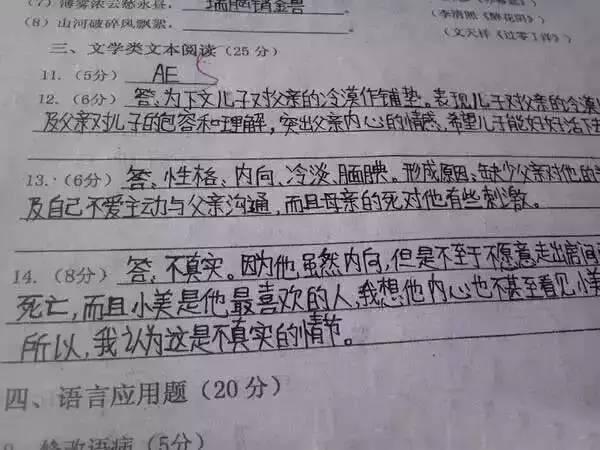 (7)薄雾浓云愁永昼,瑞脑销金兽
(李清照《醉花阴》)
(8)山河破碎风飘絮,
(文天祥《过零丁洋》)
三、文学类文本阅读(25分)
11.(5分) AE
12.(6分) 答:为下文儿子对父亲的冷漠作铺垫。表现儿子对父亲的冷漠
及父亲对儿子的包容和理解,突出父亲内心的情感,希望儿子能好好活下去
13.(6分) 答:性格、内向、冷淡、腼腆。形成原因:缺少父亲对他的
及自己不爱主动与父亲沟通,而且母亲的死对他有些刺激。
14.(8分) 答:不真实。因为他虽然内向,但是不至于不愿意走出房间
死亡,而且小美是他最喜欢的人,我想他内心也不甚至看见小美
所以,我认为这是不真实的情节。
四、语言应用题(20分)
修改语病(5分)